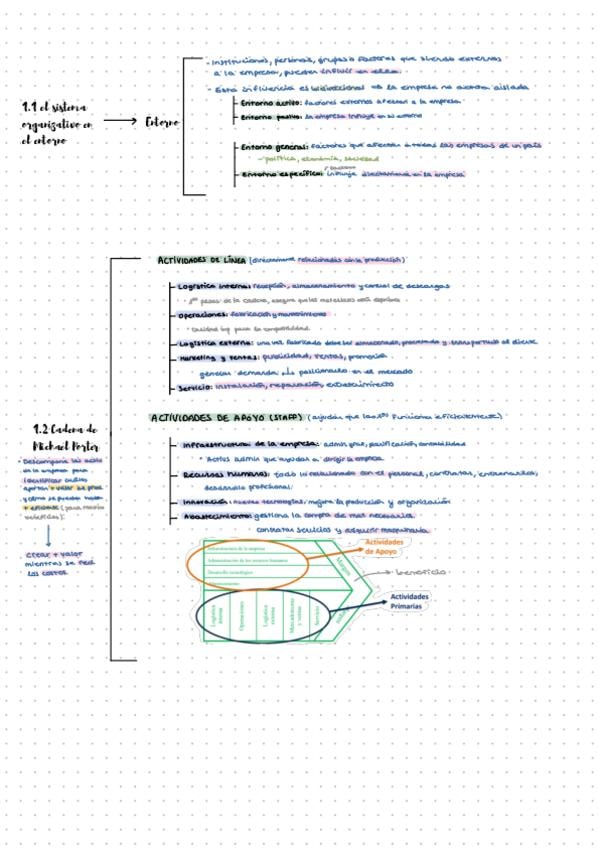 1.1 el sistema
organizativo en
el entorno
Entorno
- Instituciones, personas, grupos o factores que siendo externos
a la empresa, pueden influir en ella.
- Esta influencia es bidireccional → la empresa no actúa aislada
Entorno activo: factores externos afectan a la empresa
Entorno pasivo: la empresa influye en su entorno
Entorno general: factores que afectan a todas las empresas de un país
- política, economía, sociedad
Entorno específico: influye directamente en la empresa
1.2 Cadena de
Michael Porter
de la empresa para
identificar cuáles
aportan + valor al prod
Crear + valor
mientras se red.
los costos
ACTIVIDADES DE LÍNEA (directamente relacionadas con la producción)
Logística interna: recepción, almacenamiento y control de descargas
Operaciones: fabricación y mantenimiento
Logística externa: una vez fabricado debe ser almacenado, procesado y transportado al cliente
Marketing y ventas: publicidad, ventas, promoción
generar demanda posicionarlo en el mercado
Servicio: instalación, reparación, entretenimiento
ACTIVIDADES DE APOYO (STAFF) (ayudan que las 1ª funcionen eficientemente)
Infraestructura de la empresa: admin gral, planificación, contabilidad
* Activs admin que ayudan a dirigir la empresa
Recursos humanos: todo lo relacionado con el personal, contratas, entrenarlos,
desarrollo profesional.
Innovación: nuevas tecnologías, mejora la producción y organización
Abastecimiento: gestiona la compra de mat necesarios.
contratar servicios y adquirir maquinaria
Actividades
de Apoyo
Infraestructura de la empresa
Administración de los recursos humanos
Desarrollo tecnológico
Abastecimiento
Margen
beneficio
Actividades
Primarias
Logística
interna
Operaciones
Logística
externa
Mercadotecnia
y ventas
Servicio